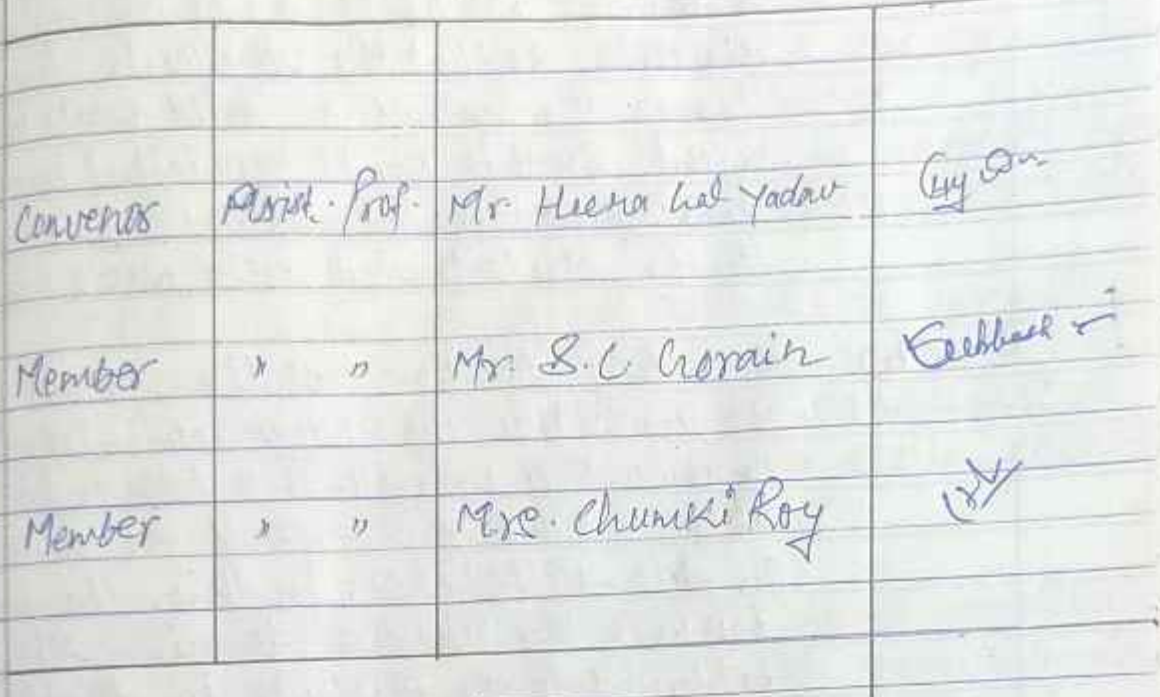 Convenor Assist. Prof. Mr. Heera Lal Yadav
Member " " Mr. S.C Gorain
Member " " Mrs. Chumki Roy